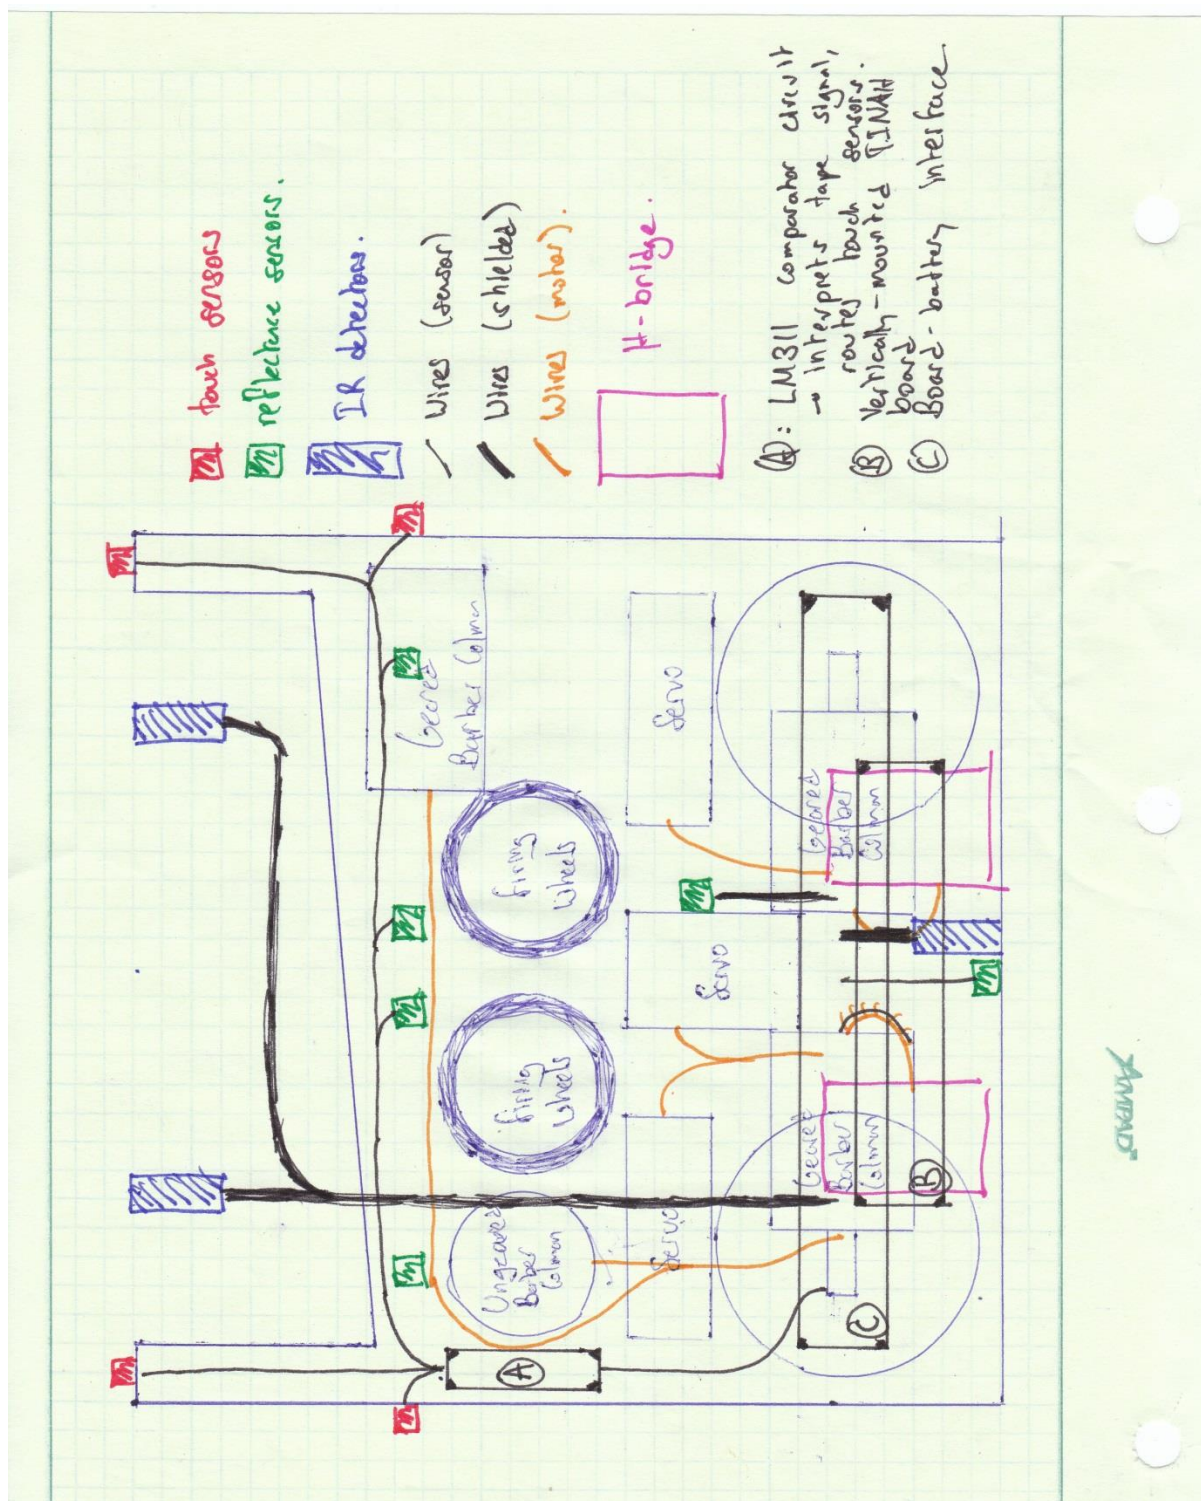 touch sensors
reflectance sensors.
IR detectors.
Wires (sensor)
Wires (shielded)
Wires (motor).
H-bridge.
(A): LM311 comparator circuit
→ interprets tape signal,
routes touch sensors.
(B) Vertically-mounted TINAH
board
(C) Board-battery interface
Geared
Barber Colman
Firing
Wheels
Firing
Wheels
Ungeared
Barber
Colman
Servo
Servo
Servo
Geared
Barber
Colman
Geared
Barber
Colman
A
B
C
AMPAD